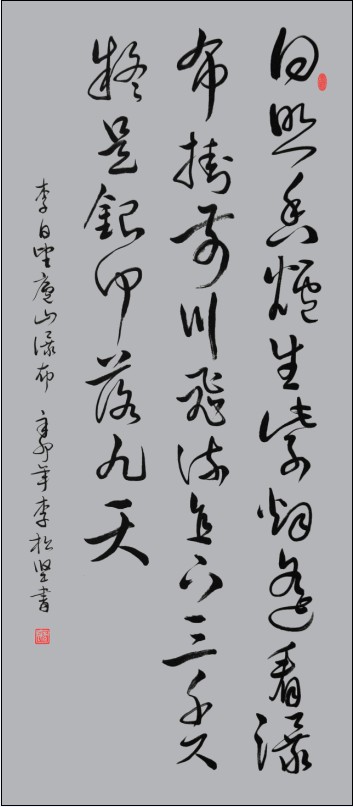 日照香爐生紫烟遥看瀑
布掛前川飛流直下三千尺
疑是銀河落九天
李白望廬山瀑布 辛卯年李松坚書